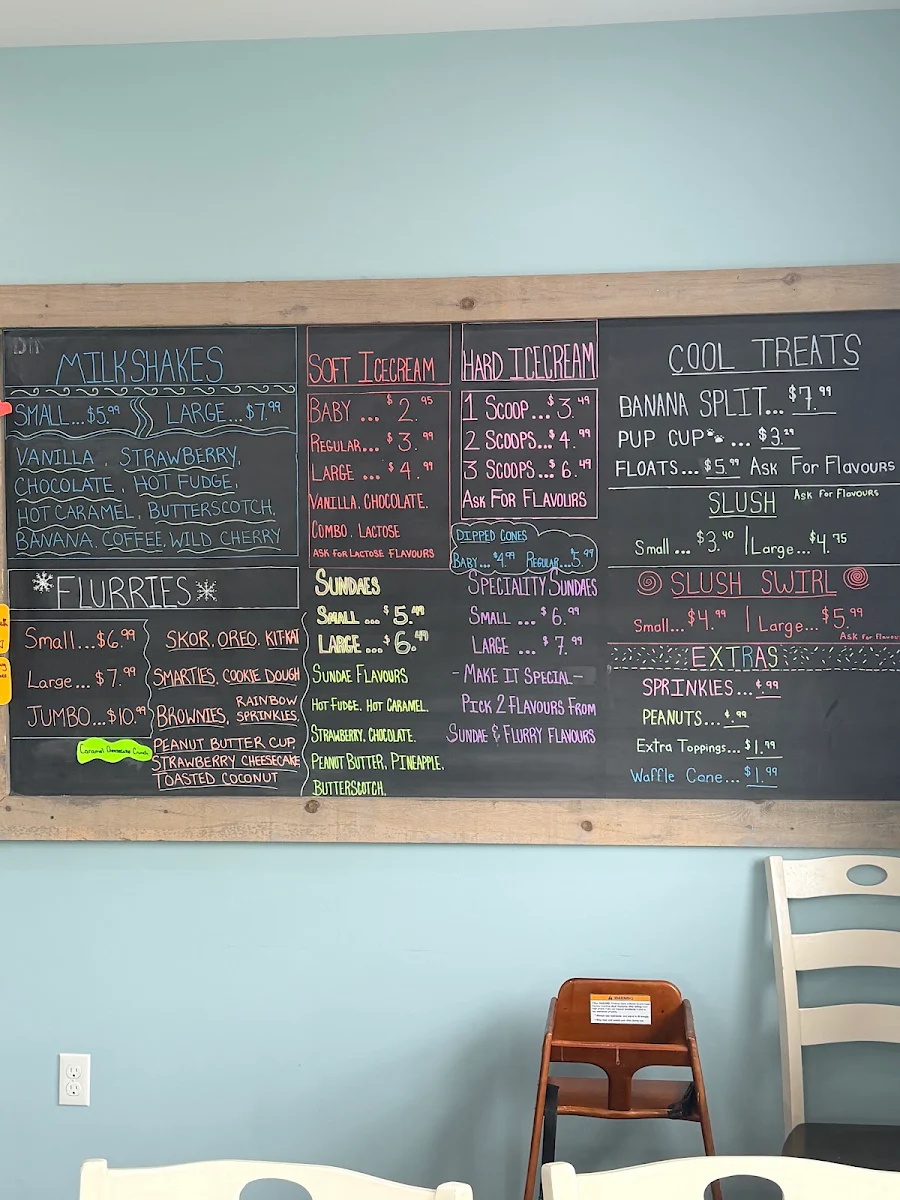 MILKSHAKES
SMALL...$5.99 LARGE...$7.99
VANILLA, STRAWBERRY,
CHOCOLATE, HOT FUDGE,
HOT CARAMEL, BUTTERSCOTCH,
BANANA, COFFEE, WILD CHERRY
FLURRIES
Small...$6.99
Large...$7.99
JUMBO...$10.99
Caramel Cheesecake Crunch
SKOR, OREO, KIT-KAT
SMARTIES, COOKIE DOUGH
BROWNIES, RAINBOW SPRINKLES,
PEANUT BUTTER CUP,
STRAWBERRY CHEESECAKE
TOASTED COCONUT
SOFT ICECREAM
BABY ... $2.95
REGULAR... $3.99
LARGE ... $4.99
VANILLA, CHOCOLATE,
COMBO, LACTOSE
ASK FOR LACTOSE FLAVOURS
SUNDAES
SMALL ... $5.49
LARGE ... $6.49
SUNDAE FLAVOURS
HOT FUDGE, HOT CARAMEL,
STRAWBERRY, CHOCOLATE,
PEANUT BUTTER, PINEAPPLE,
BUTTERSCOTCH,
HARD ICECREAM
1 SCOOP...$3.49
2 SCOOPS...$4.99
3 SCOOPS...$6.49
ASK FOR FLAVOURS
DIPPED CONES
BABY...$4.99 REGULAR...$5.99
SPECIALITY SUNDAES
SMALL ... $6.99
LARGE ... $7.99
- MAKE IT SPECIAL -
PICK 2 FLAVOURS FROM
SUNDAE & FLURRY FLAVOURS
COOL TREATS
BANANA SPLIT... $7.99
PUP CUP ... $3.29
FLOATS... $5.99 ASK FOR FLAVOURS
SLUSH ASK FOR FLAVOURS
Small ... $3.40 Large...$4.75
SLUSH SWIRL
Small...$4.99 Large...$5.99
EXTRAS
SPRINKLES...$.99
PEANUTS...$.99
Extra Toppings...$1.99
Waffle Cone...$1.99
WARNING